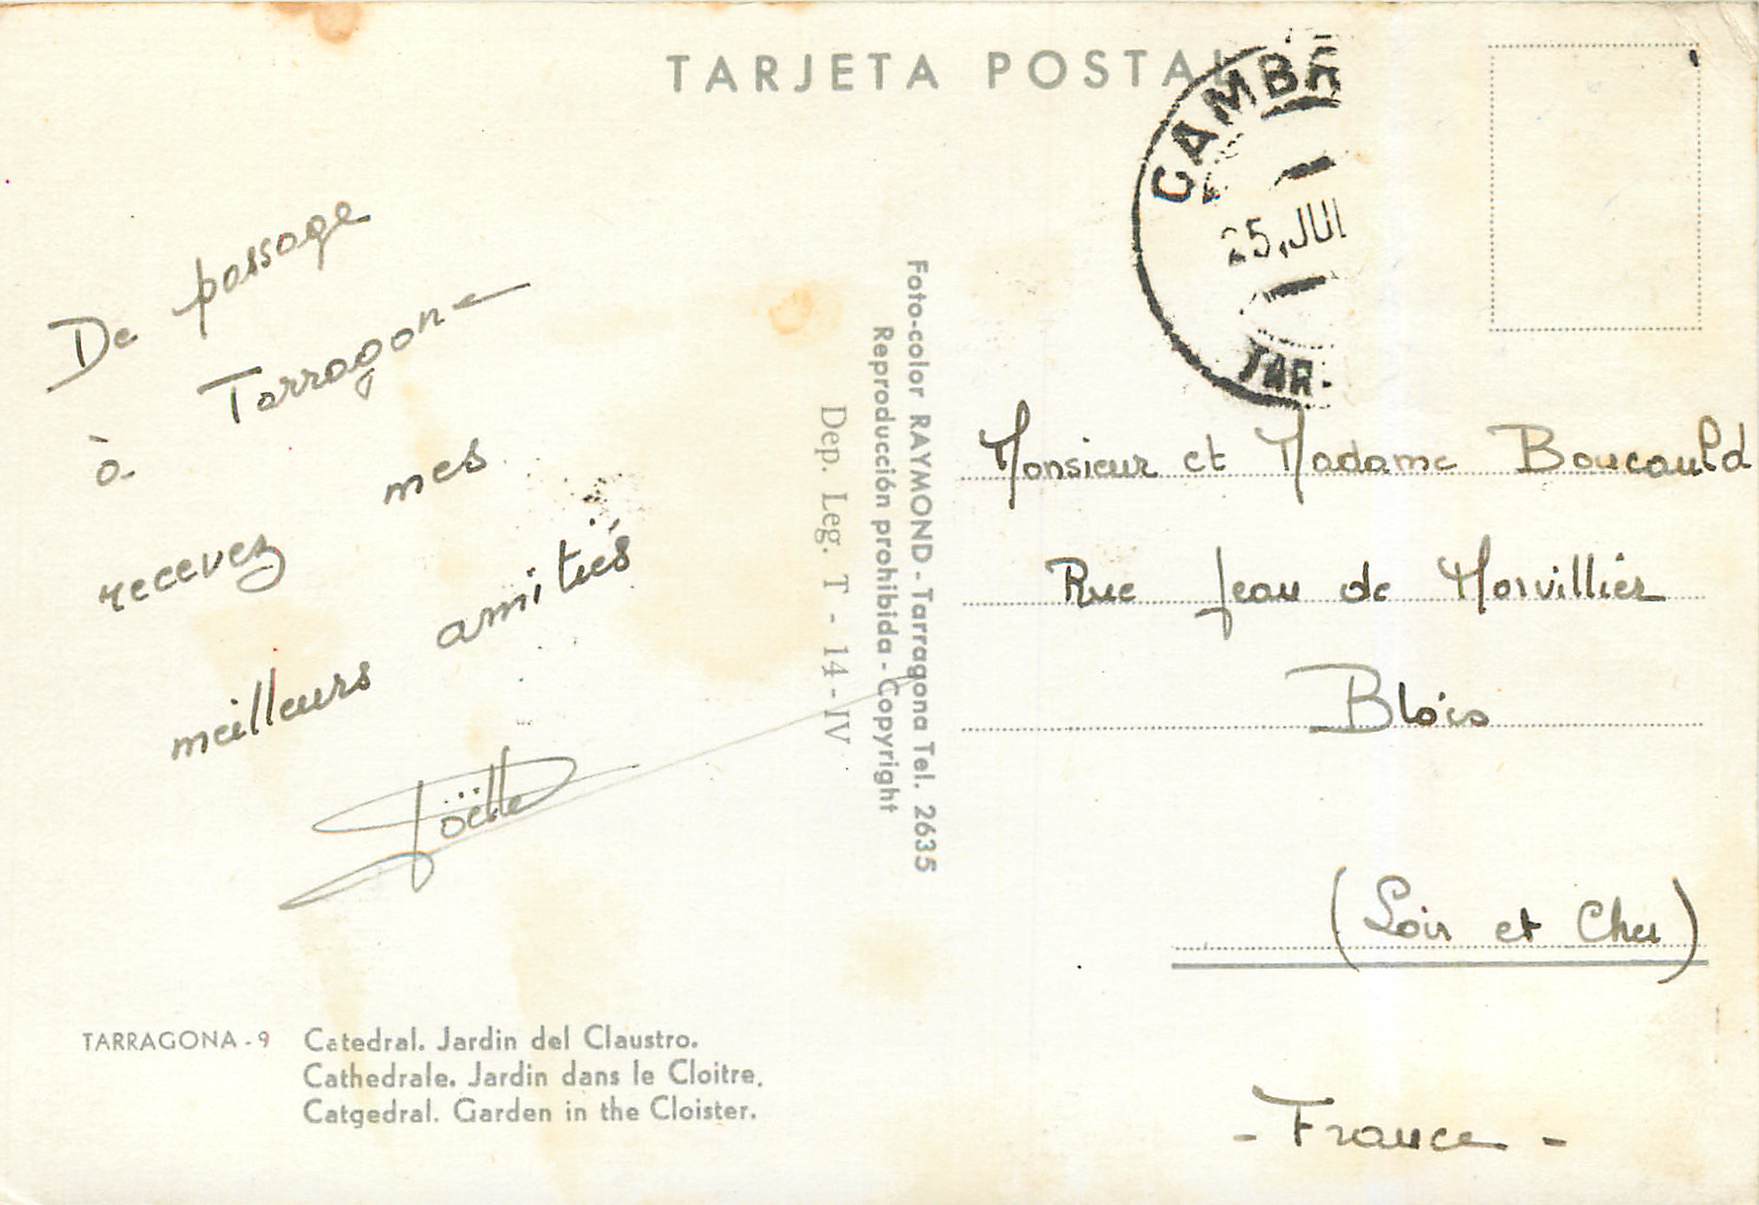 TARJETA POSTAL
CAMBR
25.JUL
TAR.
De passage
à Tarragone
recevez mes
meilleurs amitiés
Joëlle
Foto-color RAYMOND - Tarragona Tel. 2635
Reproducción prohibida - Copyright
Dep. Leg. T - 14 - IV
Monsieur et Madame Boucauld
Rue Jean de Morvillier
Blois
(Loir et Cher)
- France -
TARRAGONA - 9 Catedral. Jardin del Claustro.
Cathedrale. Jardin dans le Cloitre.
Catgedral. Garden in the Cloister.